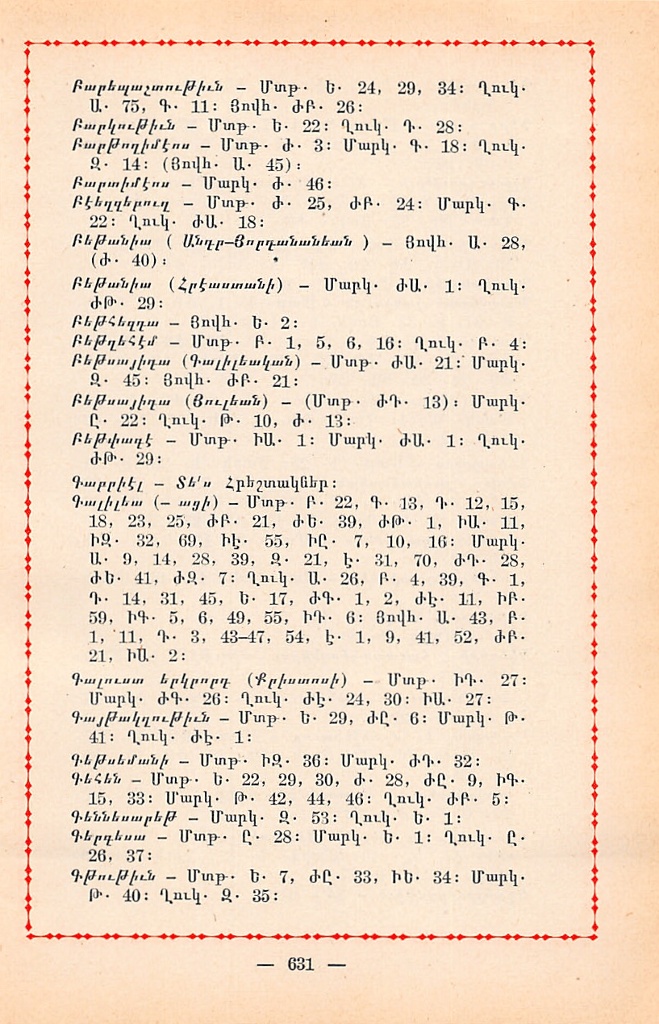 Բարեպաշտութիւն – Մտք․ Ե․ 24, 29, 34։ Ղուկ․
Ա․ 75, Գ․ 11։ Յովհ․ ԺԲ․ 26։
Բարկութիւն – Մտք․ Ե․ 22։ Ղուկ․ Դ․ 28։
Բարթողիմէոս – Մտք․ Ժ․ 3։ Մարկ․ Գ․ 18։ Ղուկ․
Զ․ 14։ (Յովհ․ Ա․ 45)։
Բարտիմէոս – Մարկ․ Ժ․ 46։
Բէեղզեբուղ – Մտք․ Ժ․ 25, ԺԲ․ 24։ Մարկ․ Գ․
22։ Ղուկ․ ԺԱ․ 18։
Բեթանիա ( Անդր–Յորդանանեան ) – Յովհ․ Ա․ 28,
(Ժ․ 40)։
Բեթանիա (Հրէաստանի) – Մարկ․ ԺԱ․ 1։ Ղուկ․
ԺԹ․ 29։
Բեթհեզդա – Յովհ․ Ե․ 2։
Բեթղեհէմ – Մտք․ Բ․ 1, 5, 6, 16։ Ղուկ․ Բ․ 4։
Բեթսայիդա (Գալիլեական) – Մտք․ ԺԱ․ 21։ Մարկ․
Զ․ 45։ Յովհ․ ԺԲ․ 21։
Բեթսայիդա (Յուլեան) – (Մտք․ ԺԴ․ 13)։ Մարկ․
Ը․ 22։ Ղուկ․ Թ․ 10, Ժ․ 13։
Բեթփագէ – Մտք․ ԻԱ․ 1։ Մարկ․ ԺԱ․ 1։ Ղուկ․
ԺԹ․ 29։
Գաբրիէլ – Տե՛ս Հրեշտակներ։
Գալիլեա (– ացի) – Մտք․ Բ․ 22, Գ․ 13, Դ․ 12, 15,
18, 23, 25, ԺԲ․ 21, ԺԵ․ 39, ԺԹ․ 1, ԻԱ․ 11,
ԻԶ․ 32, 69, ԻԷ․ 55, ԻԸ․ 7, 10, 16։ Մարկ․
Ա․ 9, 14, 28, 39, Զ․ 21, Է․ 31, 70, ԺԴ․ 28,
ԺԵ․ 41, ԺԶ․ 7։ Ղուկ․ Ա․ 26, Բ․ 4, 39, Գ․ 1,
Դ․ 14, 31, 45, Ե․ 17, ԺԳ․ 1, 2, ԺԷ․ 11, ԻԲ․
59, ԻԳ․ 5, 6, 49, 55, ԻԴ․ 6։ Յովհ․ Ա․ 43, Բ․
1, 11, Դ․ 3, 43–47, 54, Է․ 1, 9, 41, 52, ԺԲ․
21, ԻԱ․ 2։
Գալուստ երկրորդ (Քրիստոսի) – Մտք․ ԻԴ․ 27։
Մարկ․ ԺԳ․ 26։ Ղուկ․ ԺԷ․ 24, 30։ ԻԱ․ 27։
Գայթակղութիւն – Մտք․ Ե․ 29, ԺԸ․ 6։ Մարկ․ Թ․
41։ Ղուկ․ ԺԷ․ 1։
Գեթսեմանի – Մտք․ ԻԶ․ 36։ Մարկ․ ԺԴ․ 32։
Գեհեն – Մտք․ Ե․ 22, 29, 30, Ժ․ 28, ԺԸ․ 9, ԻԳ․
15, 33։ Մարկ․ Թ․ 42, 44, 46։ Ղուկ․ ԺԲ․ 5։
Գեննեսարեթ – Մարկ․ Զ․ 53։ Ղուկ․ Ե․ 1։
Գերգեսա – Մտք․ Ը․ 28։ Մարկ․ Ե․ 1։ Ղուկ․ Ը․
26, 37։
Գթութիւն – Մտք․ Ե․ 7, ԺԸ․ 33, ԻԵ․ 34։ Մարկ․
Թ․ 40։ Ղուկ․ Զ․ 35։
— 631 —